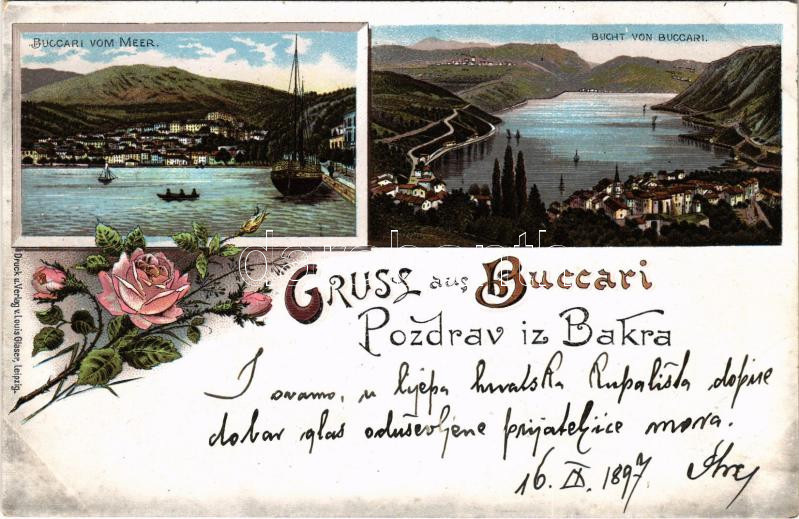 BUCCARI VOM MEER.
BUCHT VON BUCCARI.
darabanth
GRUSS aus Buccari
Pozdrav iz Bakra
Druck u. Verlag v. Louis Glaser, Leipzig.
I ovamo, u lijepa hrvatska kupališta dopire
dobar glas oduševljene prijateljice mora.
16. IX. 1897